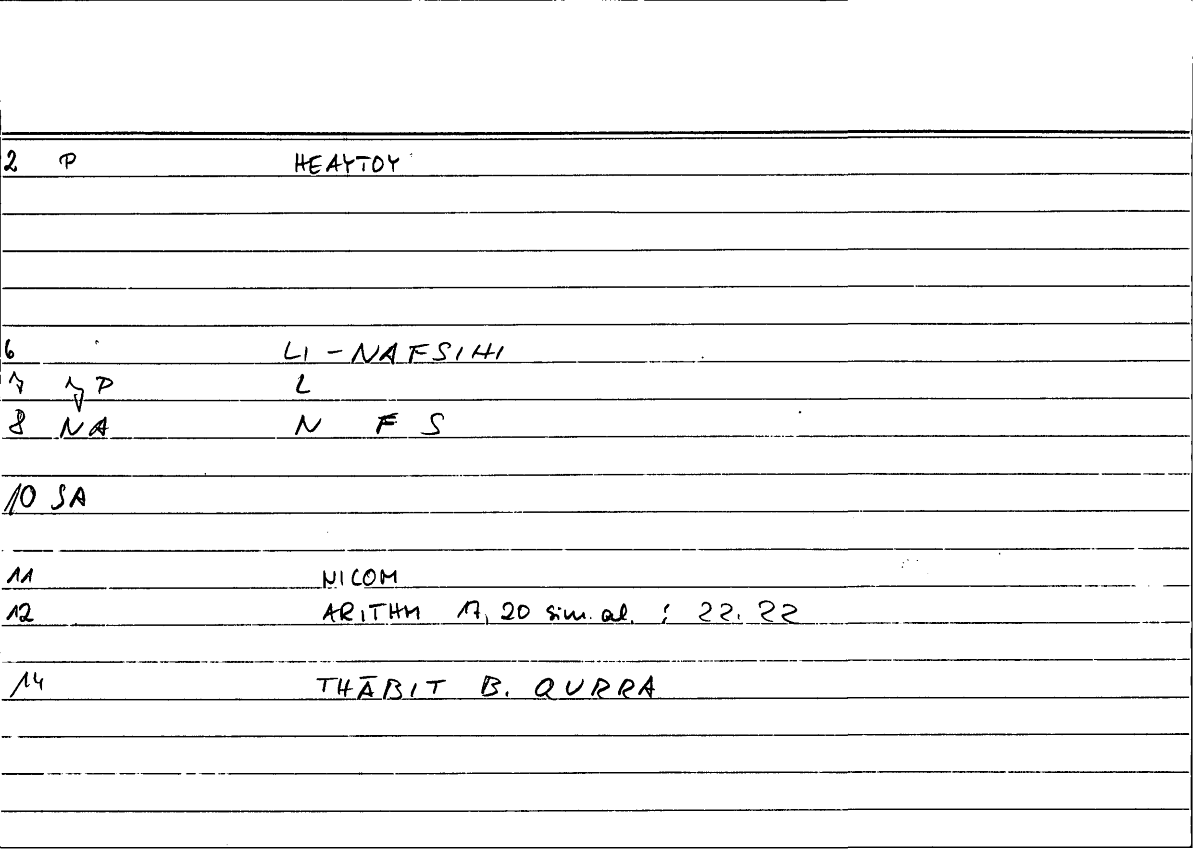 2 P HEAYTOY
6 LI-NAFSIHI
7 P L
8 NA N F S
10 SA
11 NICOM
12 ARITHM 17, 20 sim. al. ; 22. 22
14 THĀBIT B. QURRA